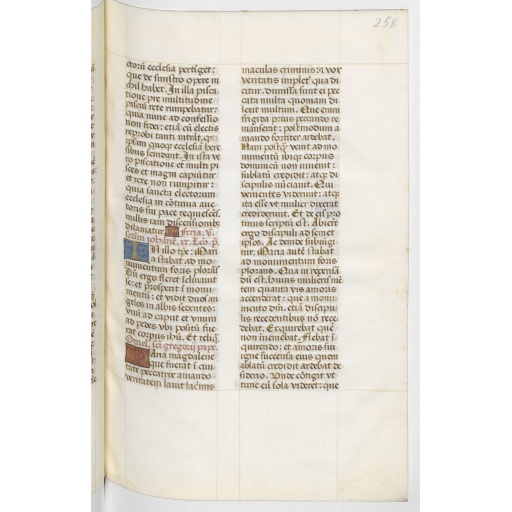 258
ctorũ ecclesia pertiget:
que de sinistro opere ni
chil habet. In illa pisca
tione pre multitudine
pisciũ rete rumpebatur:
quia nunc ad confessio
nem fidei: etiã cũ electis
reprobi tanti intrãt, qui
ipsam quoqꝫ ecclesiã here
sibus scindant. In ista ve
ro piscatione et multi pi
sces et magni capiũtur
et rete non rumpitur:
quia sancta electorum
ecclesia in cõtinua auc
toris sui pace requiescẽs.
nullis iam discensionibꝰ
dilaniatur. Feria. v.
scdm iohanẽ. xx. Lco. p.
IN illo tp̃r: Mari
a stabat ad mo
numentum foris plorãs.
Dũ ergo fleret īclinauit
se: et prospexit ĩ monu
mentũ: et vidit duos an
gelos in albis sedentes:
vnũ ad caput et vnum
ad pedes vbi positũ fue
rat corpus ihũ. Et reliq̃.
Omel. sc̃i gregorij pape.
Maria magdalene
que fuerat ĩ ciui
tate peccatrix amando
veritatem lauit lacrimis
maculas criminis: ⁊ vox
veritatis impletꝰ qua di
citur. dimissa sunt ei pec
cata multa quoniam di
lexit multum. Que enim
frigida prius peccando re
manserat: postmodum a
mando fortiter ardebat.
Nam postq̃ venit ad mo
numentũ ibiqꝫ corpus
dominicũ non inuenit:
sublatũ credidit: atqꝫ di
scipulis nũciauit. Qui
venientes viderunt: atqꝫ
ita esse vt mulier dixerat
crediderunt. Et de eis pro
tinus scriptũ est. Abierũt
ergo discipuli ad semet
ipsos. Ac deinde subiũgi
tur. Maria autẽ stabat
ad monumentum foris
plorans. Qua in re pensa
dũ est. huius mulieris mẽ
tem quanta vis amoris
accenderat: que a monu
mento dñi. etiã discipu
lis recedentibus nõ rece
debat. Exquirebat quẽ
non inuenebat. Flebat ĩ
quirendo: et amoris sui
igne succensa eius quem
ablatũ credidit ardebat de
siderio. Vnde cõtigit vt
tunc eũ sola videret: que